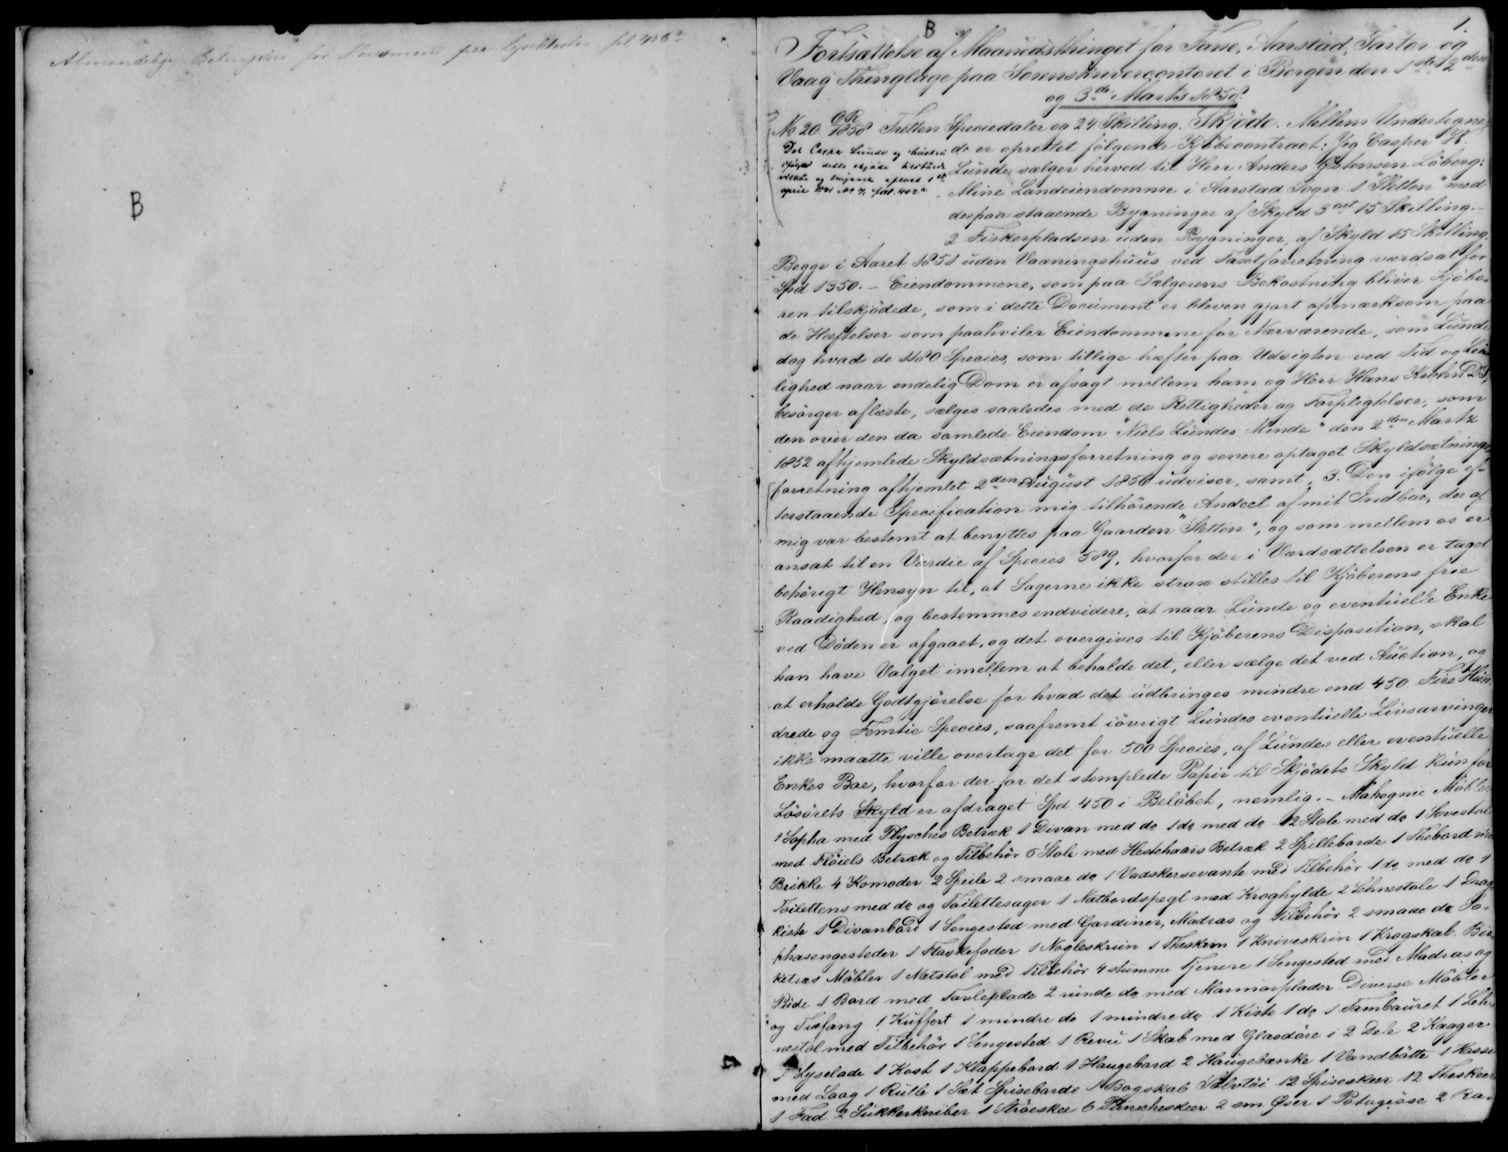 Almindelige Betingelser for fol 406a
B
B
1.
Fortsættelse af Maanedsthinget for Fane, Aarstad, Sartor og
Vaag Thinglage paa Sorenskrivercontoret i Bergen den 1ste, 2den
og 3die Marts 1858
No 20. 1858 Tretten Speciedaler og 24 Skilling. Skjöde. Mellem Undertegne-
de er oprettet fölgende Kjöbecontract: Jeg Casper
Lunde sælger herved til Herr Anders Ystensen Löberg:
Mine Landeiendomme i Aarstad Sogn 1 "Sletten" med
derpaa staaende Bygninger af Skyld 3 ort 15 Skilling. -
2 Fiskerpladsen uden Bygninger, af Skyld 15 Skilling.
Begge i Aaret 1851 uden Vaaningshuus ved Taxtforretning værdsat for
Spd 1350. - Eiendommene, som paa Sælgerens Bekostning bliver Kjöbe-
ren tilskjödede, som i dette Document er bleven gjort opmærksom paa
de Hæftelser som paahviler Eiendommene for Nærværende, som Lunde
dog hvad de 1180 Species, som tillige hæfter paa Udsigten ved Tid og Lei-
lighed naar endelig Dom er afsagt mellem ham og Herr Hans Krohn
besörger aflæste, sælges saaledes med de Rettigheder og Forpligtelser, som
den over den da samlede Eiendom "Niels Lundes Minde" den 2den Marts
1852 afhjemlede Skyldsætningsforretning og senere optaget Skyldsætnings-
forretning afhjemlet 2den August 1856 udviser, samt, 3. Den ifölge ef-
terstaaende Specification mig tilhörende Andeel af mit Indboe, der af
mig var bestemt at benyttes paa Gaarden "Sletten", og som mellem os er
ansat til en Værdie af Species 589, hvorfor der i Værdsættelsen er taget
behörigt Hensyn til, at Sagerne ikke strax stilles til Kjöberens frie
Raadighed, og bestemmes endvidere, at naar Lunde og eventuelle Enke
ved Döden er afgaaet, og det overgives til Kjöberens Disposition, skal
han have Valget imellem at beholde det, eller sælge det ved Auction, og
at erholde Godtgjörelse for hvad det udbringes mindre end 450 Fire Hun-
drede og Femtie Species, saafremt iövrigt Lundes eventuelle Livsarvinger
ikke maatte ville overtage det for 500 Species, af Lundes eller eventuelle
Enkes Boe, hvorfor der for det stemplede Papir til Skjödets Skyld kun for
Lösörets Skyld er afdraget Spd 450 i Belöbet, nemlig. - Mahognie Möbler
1 Sopha med Plysches Betræk 1 Divan med do 1 do med do 12 Stole med do 1 Sovestol
med Flöiels Betræk og Tilbehör 6 Stole med Hestehaars Betræk 2 Spilleborde 1 Thebord med
Brikke 4 Komoder 2 Speile 2 smaae do 1 Vadskerservante med Tilbehör 1 do med do 1
Toilettens med do og Toilettesager 1 Natbordspegl med Kroghylde 2 Lehnestole 1 Drag-
kiste 1 Divanbord 1 Sengested med Gardiner, Madras og Tilbehör 2 smaae do So-
phasengesteder 1 Flaskefoder 1 Nögleskrin 1 Theskrin 1 Kniveskrin 1 Krogskab Bir-
ketræs Möbler 1 Natstol med Tilbehör 4 stumme Tjenere 1 Sengested med Madras og
Pude 1 Bord med Tavleplade 2 runde do med Marmorplader. Diverse Möbler
og Træfang 1 Kuffert 1 mindre do 1 mindre do 1 Kiste 1 do 1 Tambouret 1 Leh-
nestol med Tilbehör 1 Sengested 1 1 Skab med Glasdöre i 2 Dele 2 Kaager
1 Lyselade 1 Kost 1 Klappebord 1 Haugebord 2 Haugebænke 1 Vandbötte 1 Kasse
med Laag 1 Rulle 1 Sæt Spiseborde 1 Bogskab Sölvtöi 12 Spiseskeer 12 Theskeer
1 Fad 2 Sukkerkniber 1 Ströeskee 6 Puncheskeer 2 sm. Öser 1 Potageöse 2